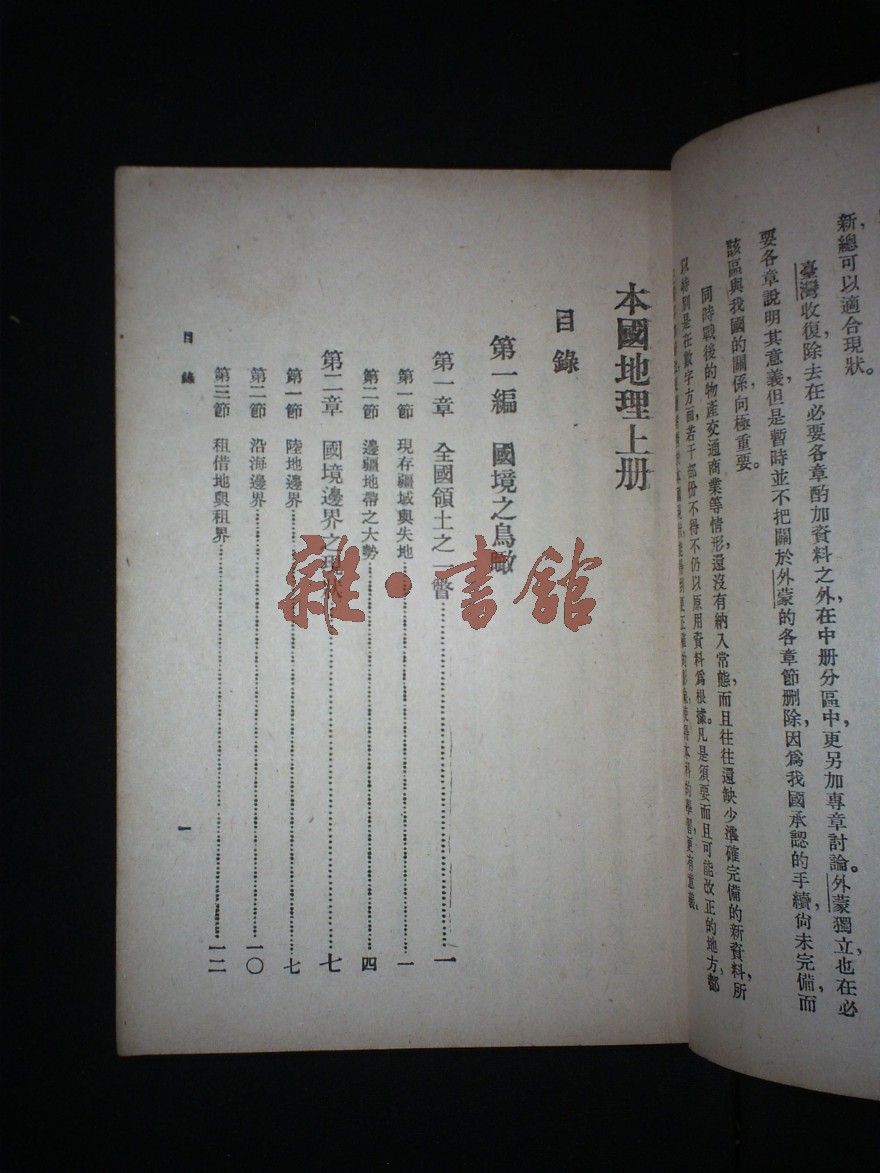 新總可以適合現狀。
臺灣收復除去在必要各章酌加資料之外,在中册分區中,更另加專章討論。外蒙獨立,也在必
要各章說明其意義,但是暫時並不把關於外蒙的各章節删除,因爲我國承認的手續,尙未完備,而
該區與我國的關係,向極重要。
同時戰後的物產交通商業等情形,還沒有納入常態,而且往往還缺少準確完備的新資料,所
以特別是在數字方面,若干部份不得不仍以原用資料爲根據。凡是須要而且可能改正的地方,都
本國地理上册
目錄
第一編 國境之鳥瞰
第一章 全國領土之一瞥 一
第一節 現存疆域與失地 一
第二節 邊疆地帶之大勢 四
第二章 國境邊界之現狀 七
第一節 陸地邊界 七
第二節 沿海邊界 一〇
第三節 租借地與租界 一二
目錄
一
雜·書館